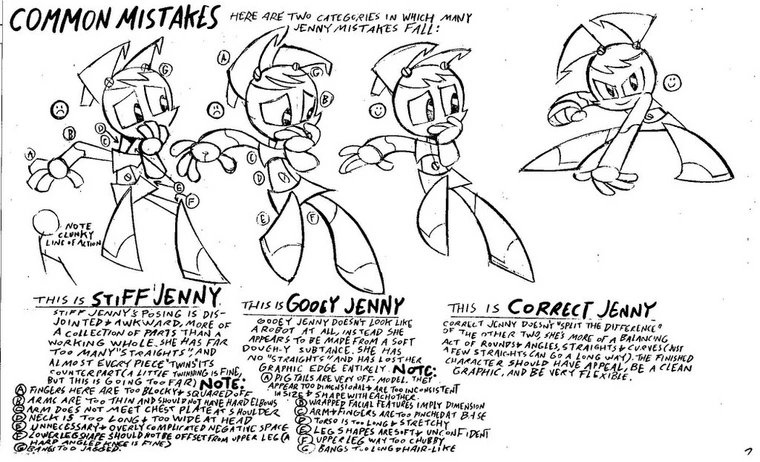 COMMON MISTAKES
HERE ARE TWO CATEGORIES IN WHICH MANY
JENNY MISTAKES FALL:
A
B
C
D
G
E
F
NOTE
CLUNKY
LINE OF ACTION
A
G
B
C
D
E
F
THIS IS STIFF JENNY
STIFF JENNY'S POSING IS DIS-
JOINTED & AWKWARD, MORE OF
A COLLECTION OF PARTS THAN A
WORKING WHOLE. SHE HAS FAR
TOO MANY "STRAIGHTS" AND
ALMOST EVERY PIECE "TWINS" ITS
COUNTERPART (A LITTLE TWINNING IS FINE,
BUT THIS IS GOING TOO FAR) NOTE:
A FINGERS HERE ARE TOO BLOCKY & SQUARED OFF
B ARMS ARE TOO THIN AND SHOULD NOT HAVE HARD ELBOWS
C ARM DOES NOT MEET CHEST PLATE AT SHOULDER
D NECK IS TOO LONG & TOO WIDE AT HEAD
E UNNECESSARY & OVERLY COMPLICATED NEGATIVE SPACE
F LOWER LEG SHAPE SHOULD NOT BE OFFSET FROM UPPER LEG (A
HARD ANGLED KNEE IS FINE)
G BANGS TOO JAGGED.
THIS IS GOOEY JENNY
GOOEY JENNY DOESN'T LOOK LIKE
A ROBOT AT ALL, INSTEAD SHE
APPEARS TO BE MADE FROM A SOFT
DOUGH-Y SUBTANCE. SHE HAS
NO "STRAIGHTS" AND HAS LOST HER
GRAPHIC EDGE ENTIRELY. NOTE:
A PIGTAILS ARE VERY OFF-MODEL. THEY
APPEAR TOO DIMENSIONAL & ARE TOO INCONSISTENT
IN SIZE & SHAPE WITH EACHOTHER.
B WRAPPED FACIAL FEATURES IMPLY DIMENSION
C ARM & FINGERS ARE TOO PINCHED AT BASE
D TORSO IS TOO LONG & STRETCHY
E LEG SHAPES ARE SOFT & UNCONFIDENT
F UPPER LEG WAY TOO CHUBBY
G BANGS TOO LONG & HAIR-LIKE
THIS IS CORRECT JENNY
CORRECT JENNY DOESN'T "SPLIT THE DIFFERENCE"
OF THE OTHER TWO, SHE'S MORE OF A BALANCING
ACT OF ROUNDS & ANGLES, STRAIGHTS & CURVES (JUST
A FEW STRAIGHTS CAN GO A LONG WAY). THE FINISHED
CHARACTER SHOULD HAVE APPEAL, BE A CLEAN
GRAPHIC, AND BE VERY FLEXIBLE.